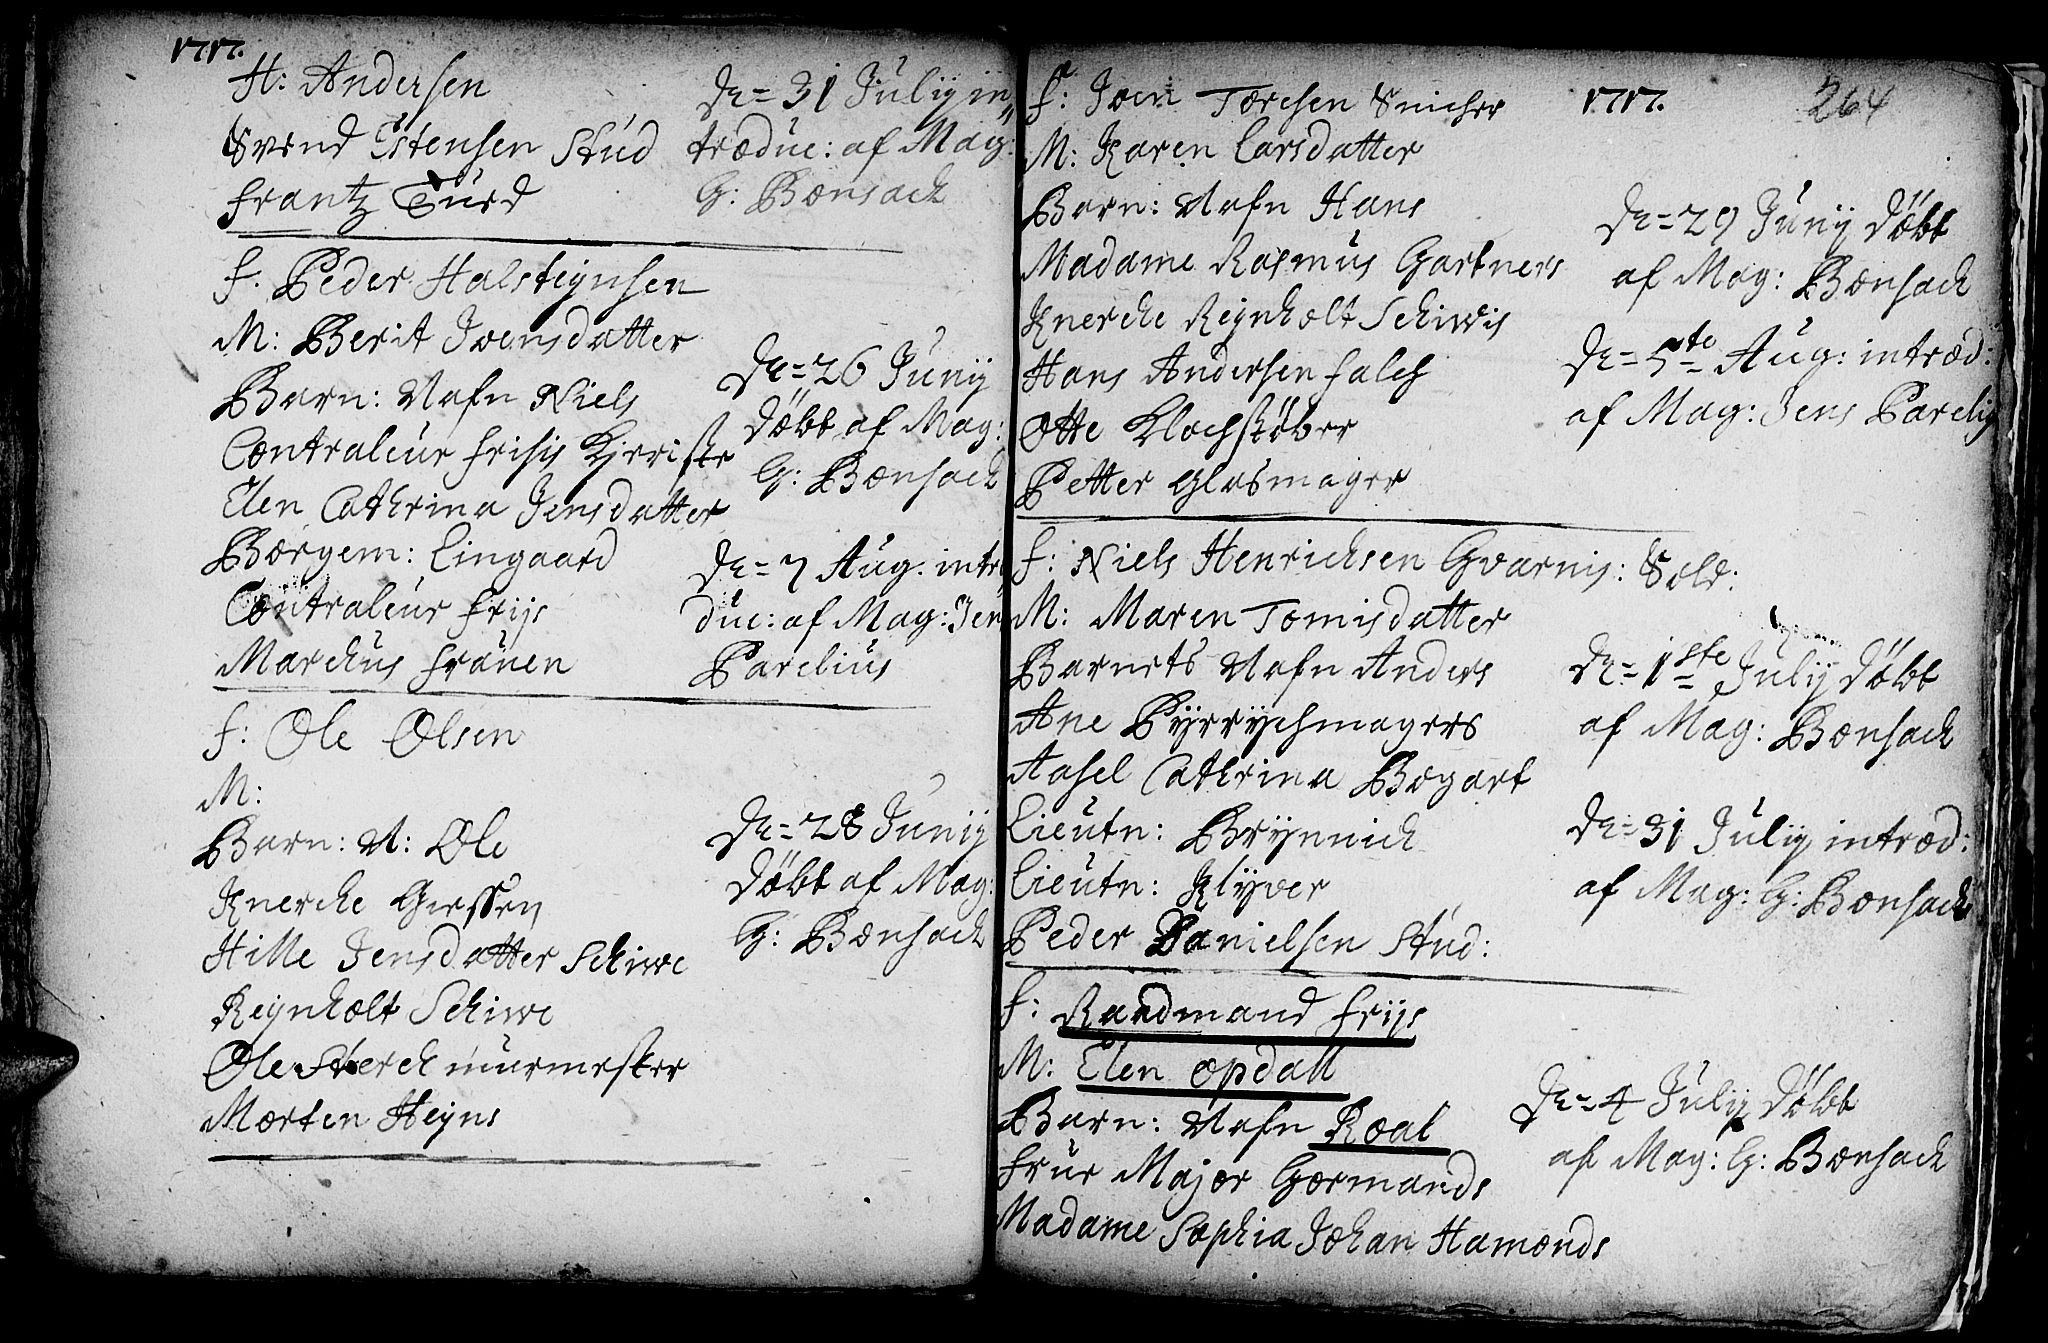 1717.
H: Andersen
Svend Estensen Stud
Frantz
De= 31 Julij in
troduc: af Mag:
G: Bonsach
F. Peder Halsteynsen
M: Berit Joensdatter
Barn: Nafn Niels
Contraleur Frisis
Elen Cathrina Jensdatter
Borgem: Lingaard
Contraleur Frijs
Marchus
De= 26 Junij
Døbt af Mag:
G: Bonsach
De= 7 Aug. intro
duc: af Mag: Jen
Parelius
F: Ole Olsen
M:
Barn: N: Ole
Knerche Giessen
Hille Jensdatter Schiwe
Reynholt Schiwe
Ole Sterch murmester
Morten Heyns
De= 28 Junij
Døbt af Mag:
G: Bonsach
1717. 264
F: Joen Toresen Snicher
M: Karen Larsdatter
Barn: Nafn Hans
Madame Rasmus Gartners
Knerche Reynholt Schiwis
Hans Andersen Falch
Otte Klochstøber
Petter Glasmager
De= 29 Junij Døbt
af Mag: Bonsach
De= 5te Aug: introd:
af Mag: Jens Pareliy
F: Niels Henrichsen Gvarnis: Sold:
M: Maren Tomisdatter
Barnets Nafn Anders
Ane Pyrrychmagers
Aasel Cathrina Bogart
Lieutn: Brynnich
Lieutn: Klyver
Peder Danielsen Stud:
De= 1ste Julij Døbt
af Mag: Bonsach
De= 31 Julij introd:
af Mag: G: Bonsach
F: Raadmand Frijs
M: Elen Opdall
Barn: Nafn Roal
Frue Major Gormands
Madame Sophia Johan Hamonds
De= 4 Julij Døbt
af Mag: G: Bonsach